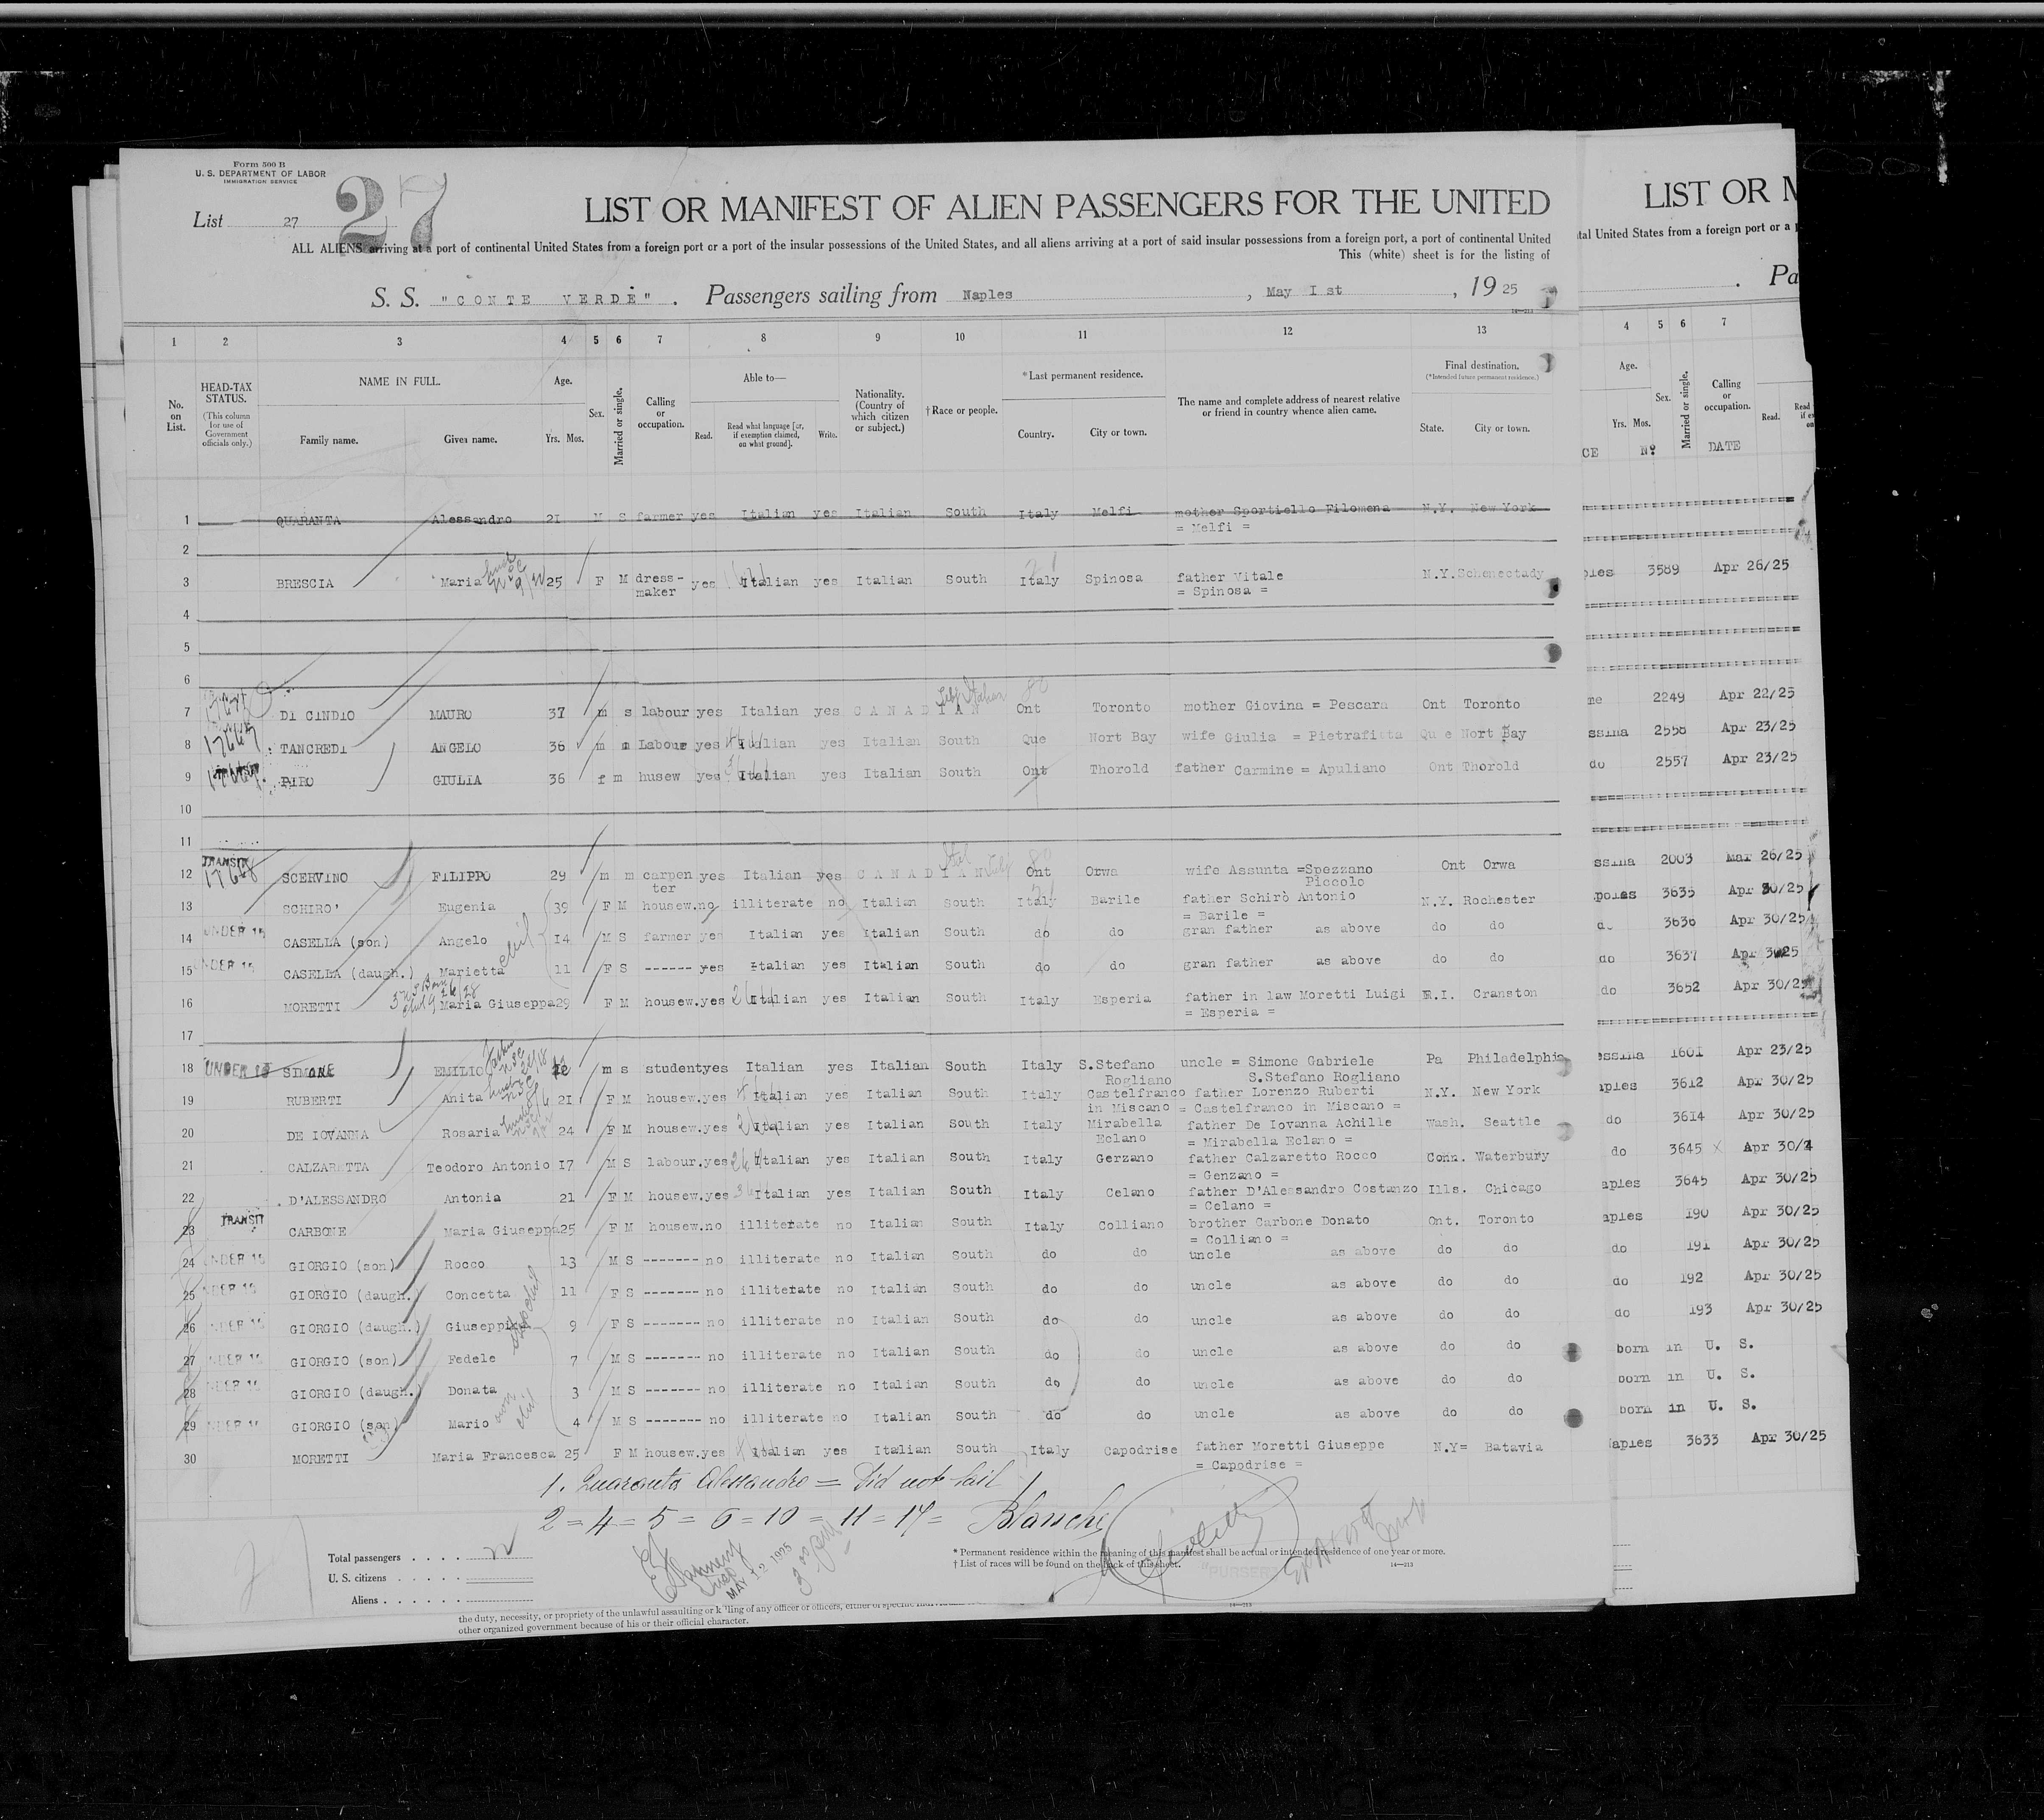 Form 500 B
U. S. DEPARTMENT OF LABOR
IMMIGRATION SERVICE
27
List 27
LIST OR MANIFEST OF ALIEN PASSENGERS FOR THE UNITED
ALL ALIENS arriving at a port of continental United States from a foreign port or a port of the insular possessions of the United States, and all aliens arriving at a port of said insular possessions from a foreign port, a port of continental United
This (white) sheet is for the listing of
S. S. "CONTE VERDE". Passengers sailing from Naples, May I st, 1925
1 2 3 4 5 6 7 8 9 10 11 12 13
No. on List.
HEAD-TAX STATUS. (This column for use of Government officials only.)
NAME IN FULL. Family name. Given name.
Age. Yrs. Mos.
Sex.
Married or single.
Calling or occupation.
Able to— Read. Read what language [or, if exemption claimed, on what ground]. Write.
Nationality. (Country of which citizen or subject.)
†Race or people.
*Last permanent residence. Country. City or town.
The name and complete address of nearest relative or friend in country whence alien came.
Final destination. (*Intended future permanent residence.) State. City or town.
1 QUARANTA Alessandro 21 M S farmer yes Italian yes Italian South Italy Melfi mother Sportiello Filomena N.Y. New York
= Melfi =
2
3 BRESCIA Maria 25 F M dress- yes Italian yes Italian South Italy Spinosa father Vitale N.Y. Schenectady
maker = Spinosa =
4
5
6
7 DI CINDIO MAURO 37 m s labour yes Italian yes CANADIAN Ont Toronto mother Giovina = Pescara Ont Toronto
8 TANCREDI ANGELO 36 m m Labour yes Italian yes Italian South Que Nort Bay wife Giulia = Pietrafitta Que Nort Bay
9 PIRO GIULIA 36 f m husew yes Italian yes Italian South Ont Thorold father Carmine = Apuliano Ont Thorold
10
11
TRANSIT
12 SCERVINO FILIPPO 29 m m carpen yes Italian yes CANADIAN Ont Orwa wife Assunta =Spezzano Ont Orwa
ter Piccolo
13 SCHIRO' Eugenia 39 F M housew. no illiterate no Italian South Italy Barile father Schirò Antonio N.Y. Rochester
= Barile =
14 UNDER 16 CASELLA (son) Angelo 14 M S farmer yes Italian yes Italian South do do gran father as above do do
15 UNDER 16 CASELLA (daugh.) Marietta 11 F S ------ yes Italian yes Italian South do do gran father as above do do
16 MORETTI Maria Giuseppa 29 F M housew. yes Italian yes Italian South Italy Esperia father in law Moretti Luigi R.I. Cranston
= Esperia =
17
18 UNDER 16 SIMONE EMILIO m s student yes Italian yes Italian South Italy S.Stefano uncle = Simone Gabriele Pa Philadelphia
Rogliano S.Stefano Rogliano
19 RUBERTI Anita 21 F M housew. yes Italian yes Italian South Italy Castelfranco father Lorenzo Ruberti N.Y. New York
in Miscano = Castelfranco in Miscano =
20 DE IOVANNA Rosaria 24 F M housew. yes Italian yes Italian South Italy Mirabella father De Iovanna Achille Wash. Seattle
Eclano = Mirabella Eclano =
21 CALZARETTA Teodoro Antonio 17 M S labour. yes Italian yes Italian South Italy Gerzano father Calzaretto Rocco Conn. Waterbury
= Genzano =
22 D'ALESSANDRO Antonia 21 F M housew. yes Italian yes Italian South Italy Celano father D'Alessandro Costanzo Ills. Chicago
= Celano =
23 TRANSIT CARBONE Maria Giuseppa 25 F M housew. no illiterate no Italian South Italy Colliano brother Carbone Donato Ont. Toronto
= Colliano =
24 UNDER 16 GIORGIO (son) Rocco 13 M S ------- no illiterate no Italian South do do uncle as above do do
25 UNDER 16 GIORGIO (daugh.) Concetta 11 F S ------- no illiterate no Italian South do do uncle as above do do
26 UNDER 16 GIORGIO (daugh.) Giuseppina 9 F S ------- no illiterate no Italian South do do uncle as above do do
27 UNDER 16 GIORGIO (son) Fedele 7 M S ------- no illiterate no Italian South do do uncle as above do do
28 UNDER 16 GIORGIO (daugh.) Donata 3 M S ------- no illiterate no Italian South do do uncle as above do do
29 UNDER 16 GIORGIO (son) Mario 4 M S ------- no illiterate no Italian South do do uncle as above do do
30 MORETTI Maria Francesca 25 F M housew. yes Italian yes Italian South Italy Capodrise father Moretti Giuseppe N.Y= Batavia
= Capodrise =
1. Quaranta Alessandro = Did not sail
2 = 4 = 5 = 6 = 10 = 11 = 17 = Blanche
MAY 12 1925
PURSER
Total passengers
U. S. citizens
Aliens
* Permanent residence within the meaning of this manifest shall be actual or intended residence of one year or more.
† List of races will be found on the back of this sheet.
14—213
the duty, necessity, or propriety of the unlawful assaulting or killing of any officer or officers, either of specific
other organized government because of his or their official character.
LIST OR M
tal United States from a foreign port or a
Pa
4 5 6 7
Age. Yrs. Mos. Sex. Married or single. Calling or occupation. Read.
CE Nº DATE
ples 3589 Apr 26/25
me 2249 Apr 22/25
ssina 2558 Apr 23/25
do 2557 Apr 23/25
ssina 2003 Mar 26/25
poles 3635 Apr 30/25
do 3636 Apr 30/25
do 3637 Apr 30/25
do 3652 Apr 30/25
essina 1601 Apr 23/25
aples 3612 Apr 30/25
do 3614 Apr 30/25
do 3645 Apr 30/
aples 3645 Apr 30/25
aples 190 Apr 30/25
do 191 Apr 30/25
do 192 Apr 30/25
do 193 Apr 30/25
born in U. S.
born in U. S.
born in U. S.
Naples 3633 Apr 30/25